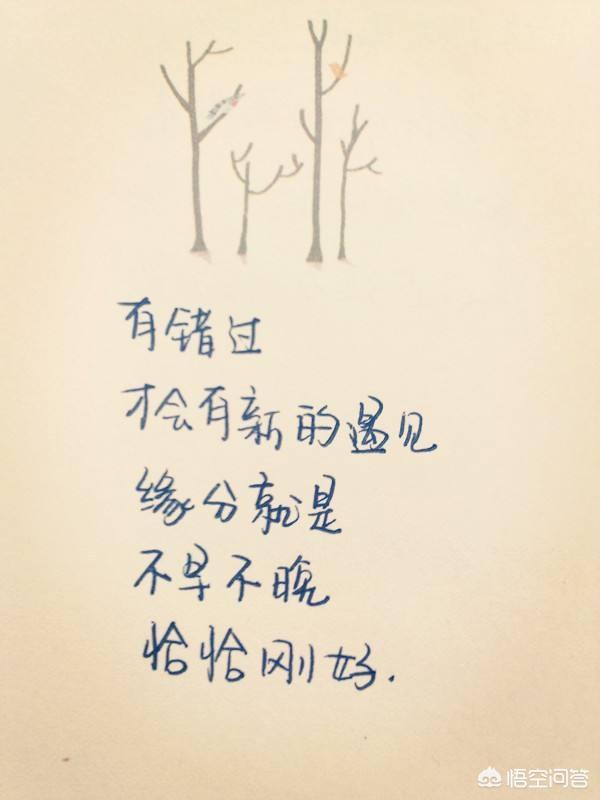 有错过
才会有新的遇见
缘分就是
不早不晚
恰恰刚好.
悟空问答